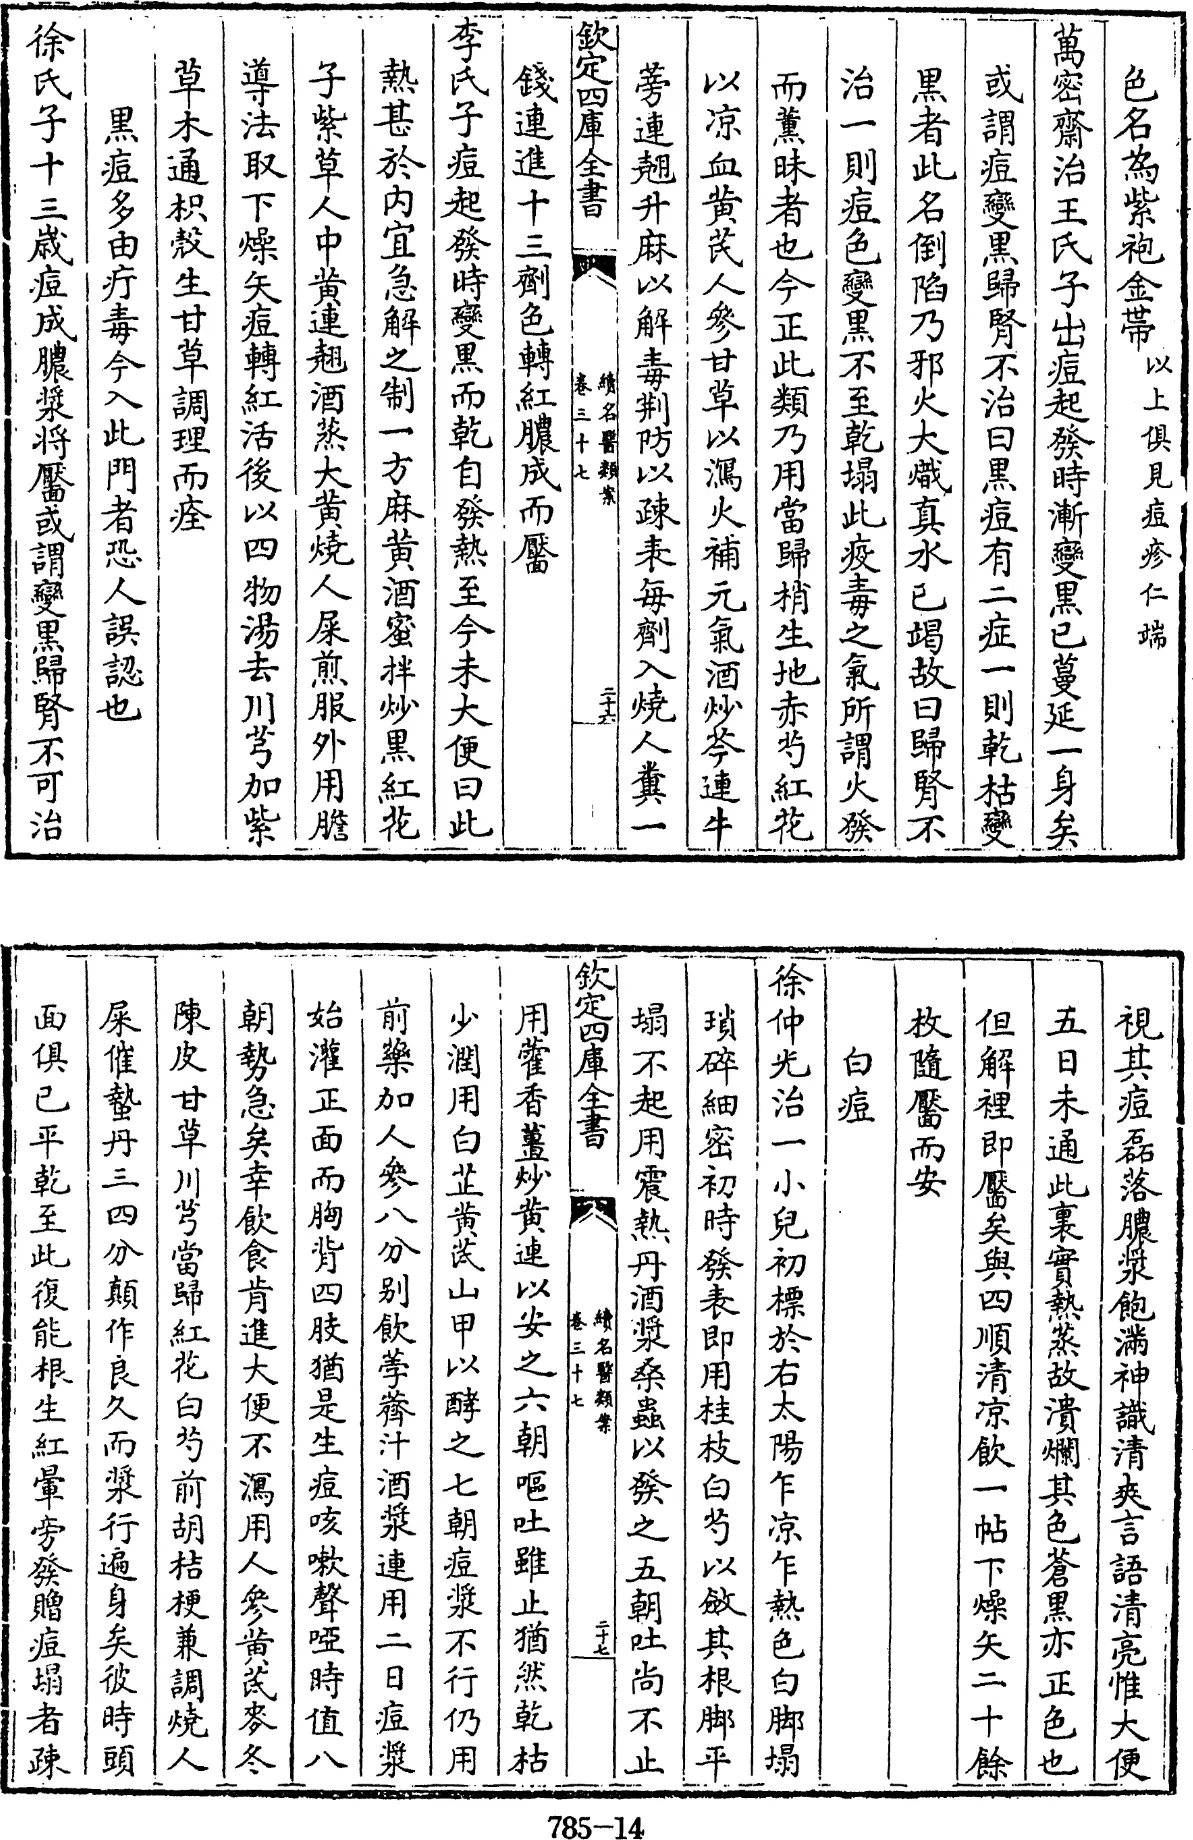 色名為紫袍金帶以上俱見痘疹仁端
萬密齋治王氏子出痘起發時漸變黑已蔓延一身矣
或謂痘變黑歸腎不治曰黑痘有二症一則乾枯變
黑者此名倒陷乃邪火大熾真水已竭故曰歸腎不
治一則痘色變黑不至乾塌此疫毒之氣所謂火發
而薰昧者也今正此類乃用當歸梢生地赤芍紅花
以凉血黄芪人參甘草以瀉火補元氣酒炒芩連牛
蒡連翹升麻以解毒荆防以疎表每劑入燒人糞一
欽定四庫全書
續名醫類案
卷三十七
二十六
錢連進十三劑色轉紅膿成而靨
李氏子痘起發時變黑而乾自發熱至今未大便曰此
熱甚於内宜急解之制一方麻黄酒蜜拌炒黑紅花
子紫草人中黄連翹酒蒸大黄燒人屎煎服外用膽
導法取下燥矢痘轉紅活後以四物湯去川芎加紫
草木通枳殼生甘草調理而痊
黑痘多由疔毒今入此門者恐人誤認也
徐氏子十三歲痘成膿漿將靨或謂變黑歸腎不可治
視其痘磊落膿漿飽滿神識清爽言語清亮惟大便
五日未通此裏實熱蒸故潰爛其色蒼黑亦正色也
但解裡即靨矣與四順清凉飲一帖下燥矢二十餘
枚隨靨而安
白痘
徐仲光治一小兒初標於右太陽乍凉乍熱色白脚塌
瑣碎細密初時發表即用桂枝白芍以斂其根脚平
塌不起用震熱丹酒漿桑蟲以發之五朝吐尚不止
欽定四庫全書
續名醫類案
卷三十七
二十七
用藿香薑炒黄連以安之六朝嘔吐雖止猶然乾枯
少潤用白芷黄芪山甲以酵之七朝痘漿不行仍用
前藥加人參八分别飲荸薺汁酒漿連用二日痘漿
始灌正面而胸背四肢猶是生痘咳嗽聲啞時值八
朝勢急矣幸飲食肯進大便不瀉用人參黄芪麥冬
陳皮甘草川芎當歸紅花白芍前胡桔梗兼調燒人
屎催蟄丹三四分顛作良久而漿行遍身矣彼時頭
面俱已平乾至此復能根生紅暈旁發贈痘塌者疎
785-14